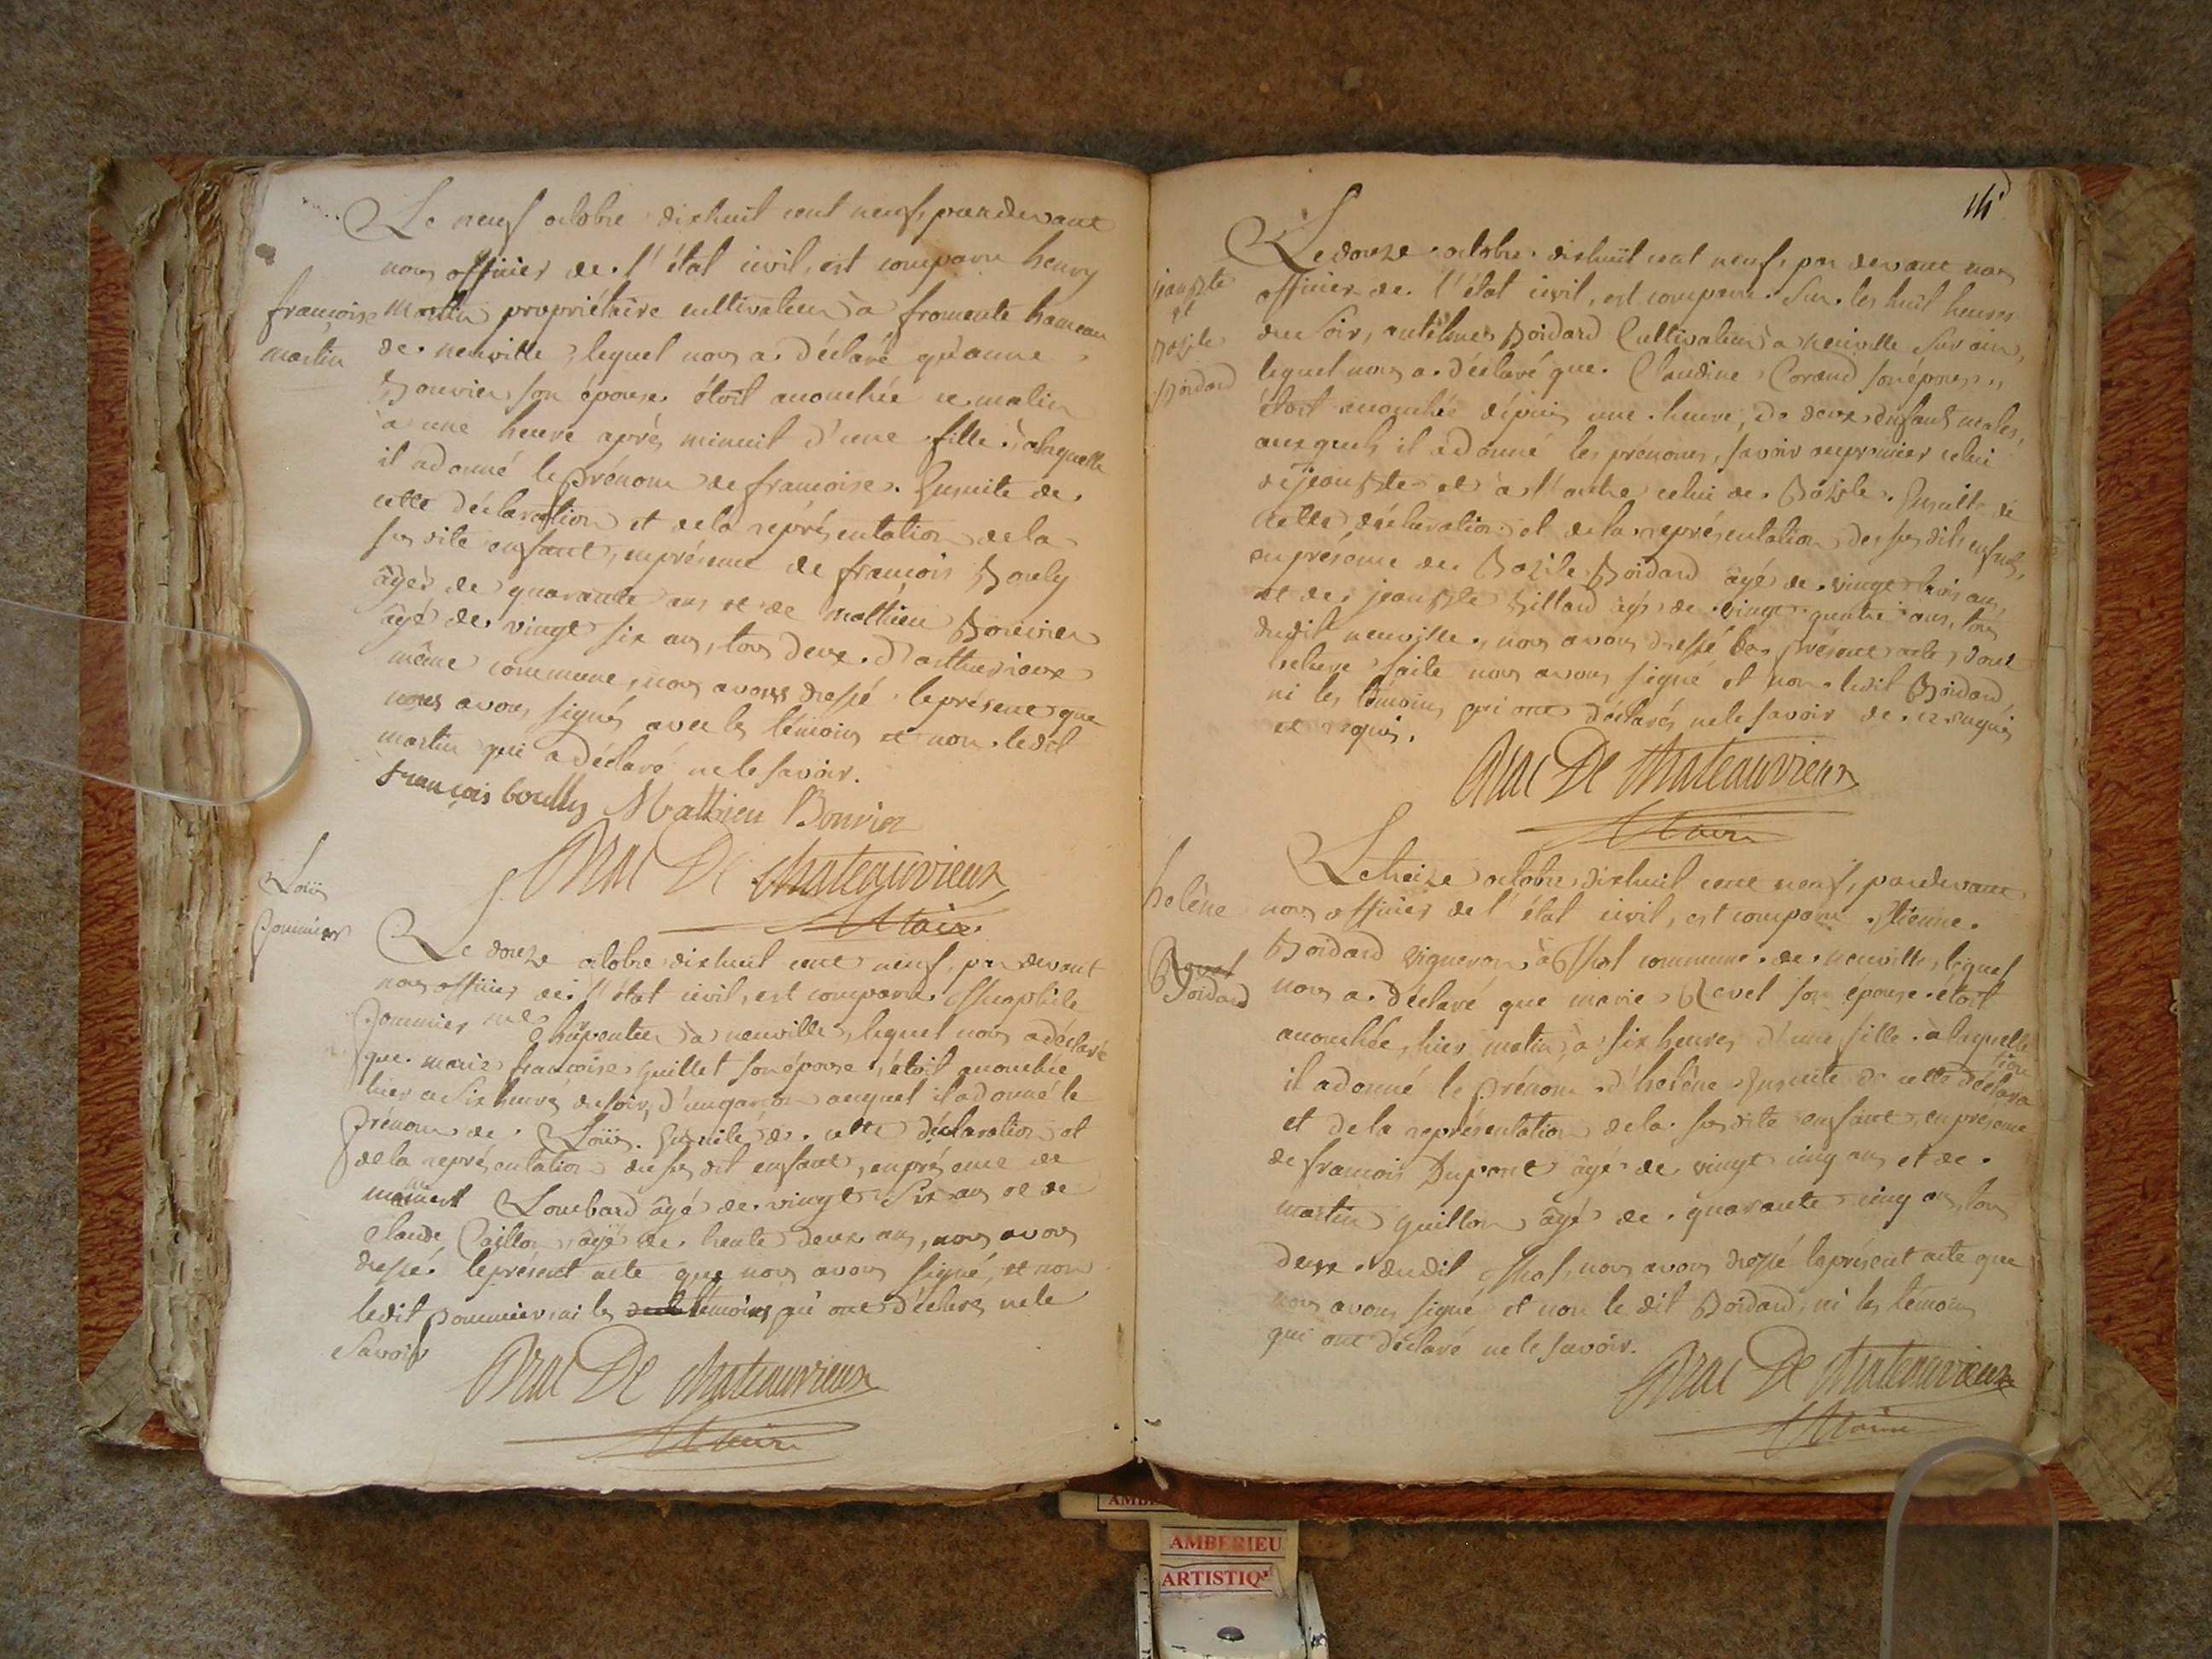 Le neuf octobre dixhuit cent neuf, pardevant
nous officier de l'état civil, est comparu henry
françoise
martin
martin propriétaire cultivateur à fromente hameau
de neuville, lequel nous a déclaré qu'anne
Bouvier son épouse étoit accouchée ce matin
à une heure après minuit d'une fille, à laquelle
il a donné le prénom de francoise. Ensuite de
cette déclaration et de la représentation de la
susdite enfant, en présence de francois Bouly
âgé de quarante ans et de mathieu Bouvier
âgé de vingt six ans, tous deux d'
même commune, nous avons dressé le présent que
nous avons signés avec les témoins et non ledit
martin qui a déclaré ne le savoir.
françois boully Mathieu Bouvier
Brac De Chateauvieux
Maire
Loüis
pommier
Le douze octobre dixhuit cent neuf, par devant
nous officier de l'état civil, est comparu theophile
pommier me charpentier à neuville, lequel nous a déclaré
que marie francoise Guillet son épouse, étoit accouchée
hier a six heures du soir, d'un garçon auquel il a donné le
prénom de Loüis. Ensuite de cette déclaration et
de la représentation du susdit enfant, en présence de
Lombard âgé de vingt six ans et de
Claude Caillon âgé de trente deux ans, nous avons
dressé le présent acte que nous avons signé, et non
ledit pommier, ni les témoins qui ont déclarés ne le
savoir
Brac De Chateauvieux
Maire
jean Bte
et
Bazile
Boidard
Le douze octobre dixhuit cent neuf, par devant nous
officier de l'état civil, est comparu sur les huit heures
du soir, antelme Boidard Cultivateur à neuville sur ain,
lequel nous a déclaré que Claudine Corand son épouse
étoit accouchée dépuis une heure, de deux enfants males,
auxquels il a donné les prénoms, savoir au premier celui
de jean Bte et à l'autre celui de Bazile. Ensuite de
cette déclaration et de la représentation des susdits enfants,
en présence de Bazile Boidard âgé de vingt trois ans,
et de jean Bte Billard âgé de vingt quatre ans, tous
dudit neuville, nous avons dressé le présent acte, dont
lecture faite nous avons signé et non ledit Boidard,
ni les témoins qui ont déclarés ne le savoir de ce enquis
et requis.
Brac De Chateauvieux
Maire
helène
Revel
Boidard
Le treize octobre dixhuit cent neuf, pardevant
nous officier de l'état civil, est comparu Etienne
Boidard Vigneron à Thol commune de neuville, lequel
nous a déclaré que marie Revel son épouse étoit
accouchée, hier matin, à six heures, d'une fille à laquelle
il a donné le prénom d'helène. Ensuite de cette déclara
tion
et de la représentation de la susdite enfant, en présence
de francois Dupont âgé de vingt cinq ans et de
martin Guillon âgé de quarante cinq ans, tous
deux dudit Thol, nous avons dressé le présent acte que
nous avons signé et non le dit Boidard, ni les témoins
qui ont déclaré ne le savoir.
Brac De Chateauvieux
Maire
AMBERIEU
ARTISTIQ